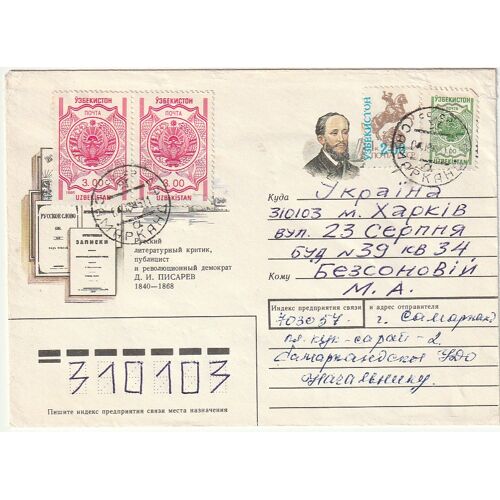 ЎЗБЕКИСТОН
ПОЧТА
3.00
UZBEKISTAN
ЎЗБЕКИСТОН
ПОЧТА
3.00
UZBEKISTAN
ЎЗБЕКИСТОН
2.00
ЎЗБЕКИСТОН
ПОЧТА
1.00
UZBEKISTAN
САМАРКАНД
САМАРКАНД
РУССКОЕ СЛОВО
ОТЕЧЕСТВЕННЫЕ
ЗАПИСКИ
Русский
литературный критик,
публицист
и революционный демократ
Д. И. ПИСАРЕВ
1840—1868
Куда Україна
310103 м. Харків
вул. 23 Серпня
буд №39 кв 34
Кому Безсоновій
М. А.
Индекс предприятия связи и адрес отправителя
703057 г. Самарканд
пл. кук-сарай-2
Самаркандское
начальнику
310103
Пишите индекс предприятия связи места назначения